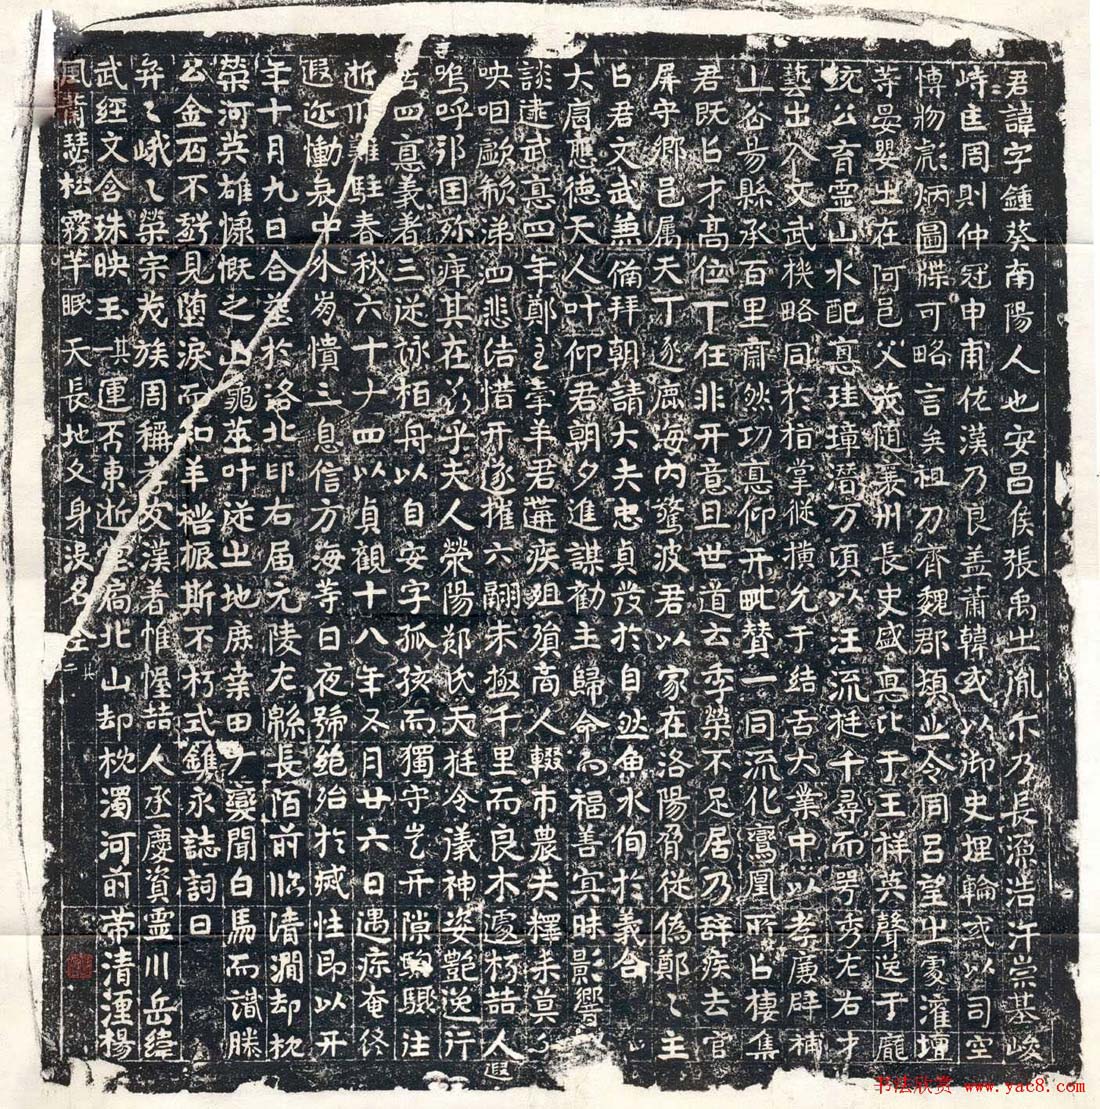 君諱字鍾葵南陽人也安昌侯張禹之胤尒乃長源浩汗崇基峻
峙在周則仲冠申甫佐漢乃良蓋蕭韓或以御史埋輪或以司空
博物彪炳圖牒可略言矣祖刀齊魏郡頓丘令同呂望之處灌壇
等晏嬰之在阿邑父英随襄州長史盛悳比于王祥英聲送于龐
統公育靈山水配悳珪璋潛万頃以汪流挺千尋而罕秀左右才
藝出入文武機略同於指掌縱橫允于結舌大業中以孝廉辟補
上谷昜縣丞百里肅然功悳仰开毗贊一同流化鸞凰所以棲集
君既以才高位下任非开意且世道云季榮不足居乃辭疾去官
屏守鄉邑属天下逐鹿海內驚波君以家在洛陽脅從偽鄭鄭主
以君文武兼俻拜朝請大夫忠貞發於自然魚水侚於義合
大唐應徳天人叶仰君朝夕進謀勸主歸命而福善冥昧影響
談逮武悳四年鄭主牽羊君遘疾殂殞商人輟市農夫釋耒莫
咉咽歔欷涕四悲结惜开遂摧六翮未極千里而良木遽朽喆人
嗚呼邦国殄瘁其在茲乎夫人滎陽郑氏天挺令儀神姿艷逸行
四悳義者三従詠柏舟以自安字孤孩而獨守豈开隙駒驟注
逝川難駐春秋六十十四以貞觀十八年五月廿六日遇疢奄终
遐迩慟哀中外崩憒三息信方海等日夜號绝殆於烕性即以开
年十月九日合塟於洛北邙右届元陵左緜長陌前临清澗却枕
榮河英雄慷慨之山龜茎叶従之地庶葉田有變聞白馬而識滕
公金石不虧見堕淚而知羊祜振斯不朽式鐫永誌詞曰
弈弈峨峨榮宗茂族周稱孝友漢著惟幄喆人丞慶資靈川岳緯
武經文含珠映玉其運否東逝堂扃北山却枕濁河前带清湹楊
風蕭瑟松霧芊眠天長地久身没名全其二
书法欣赏 www.yac8.com